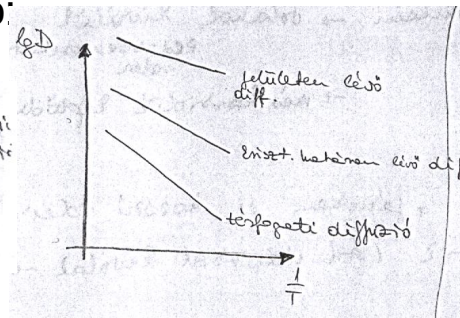 lgD
felületen lévő
diff.
Kriszt. határon lévő dif
térfogati diffúzió
1
T